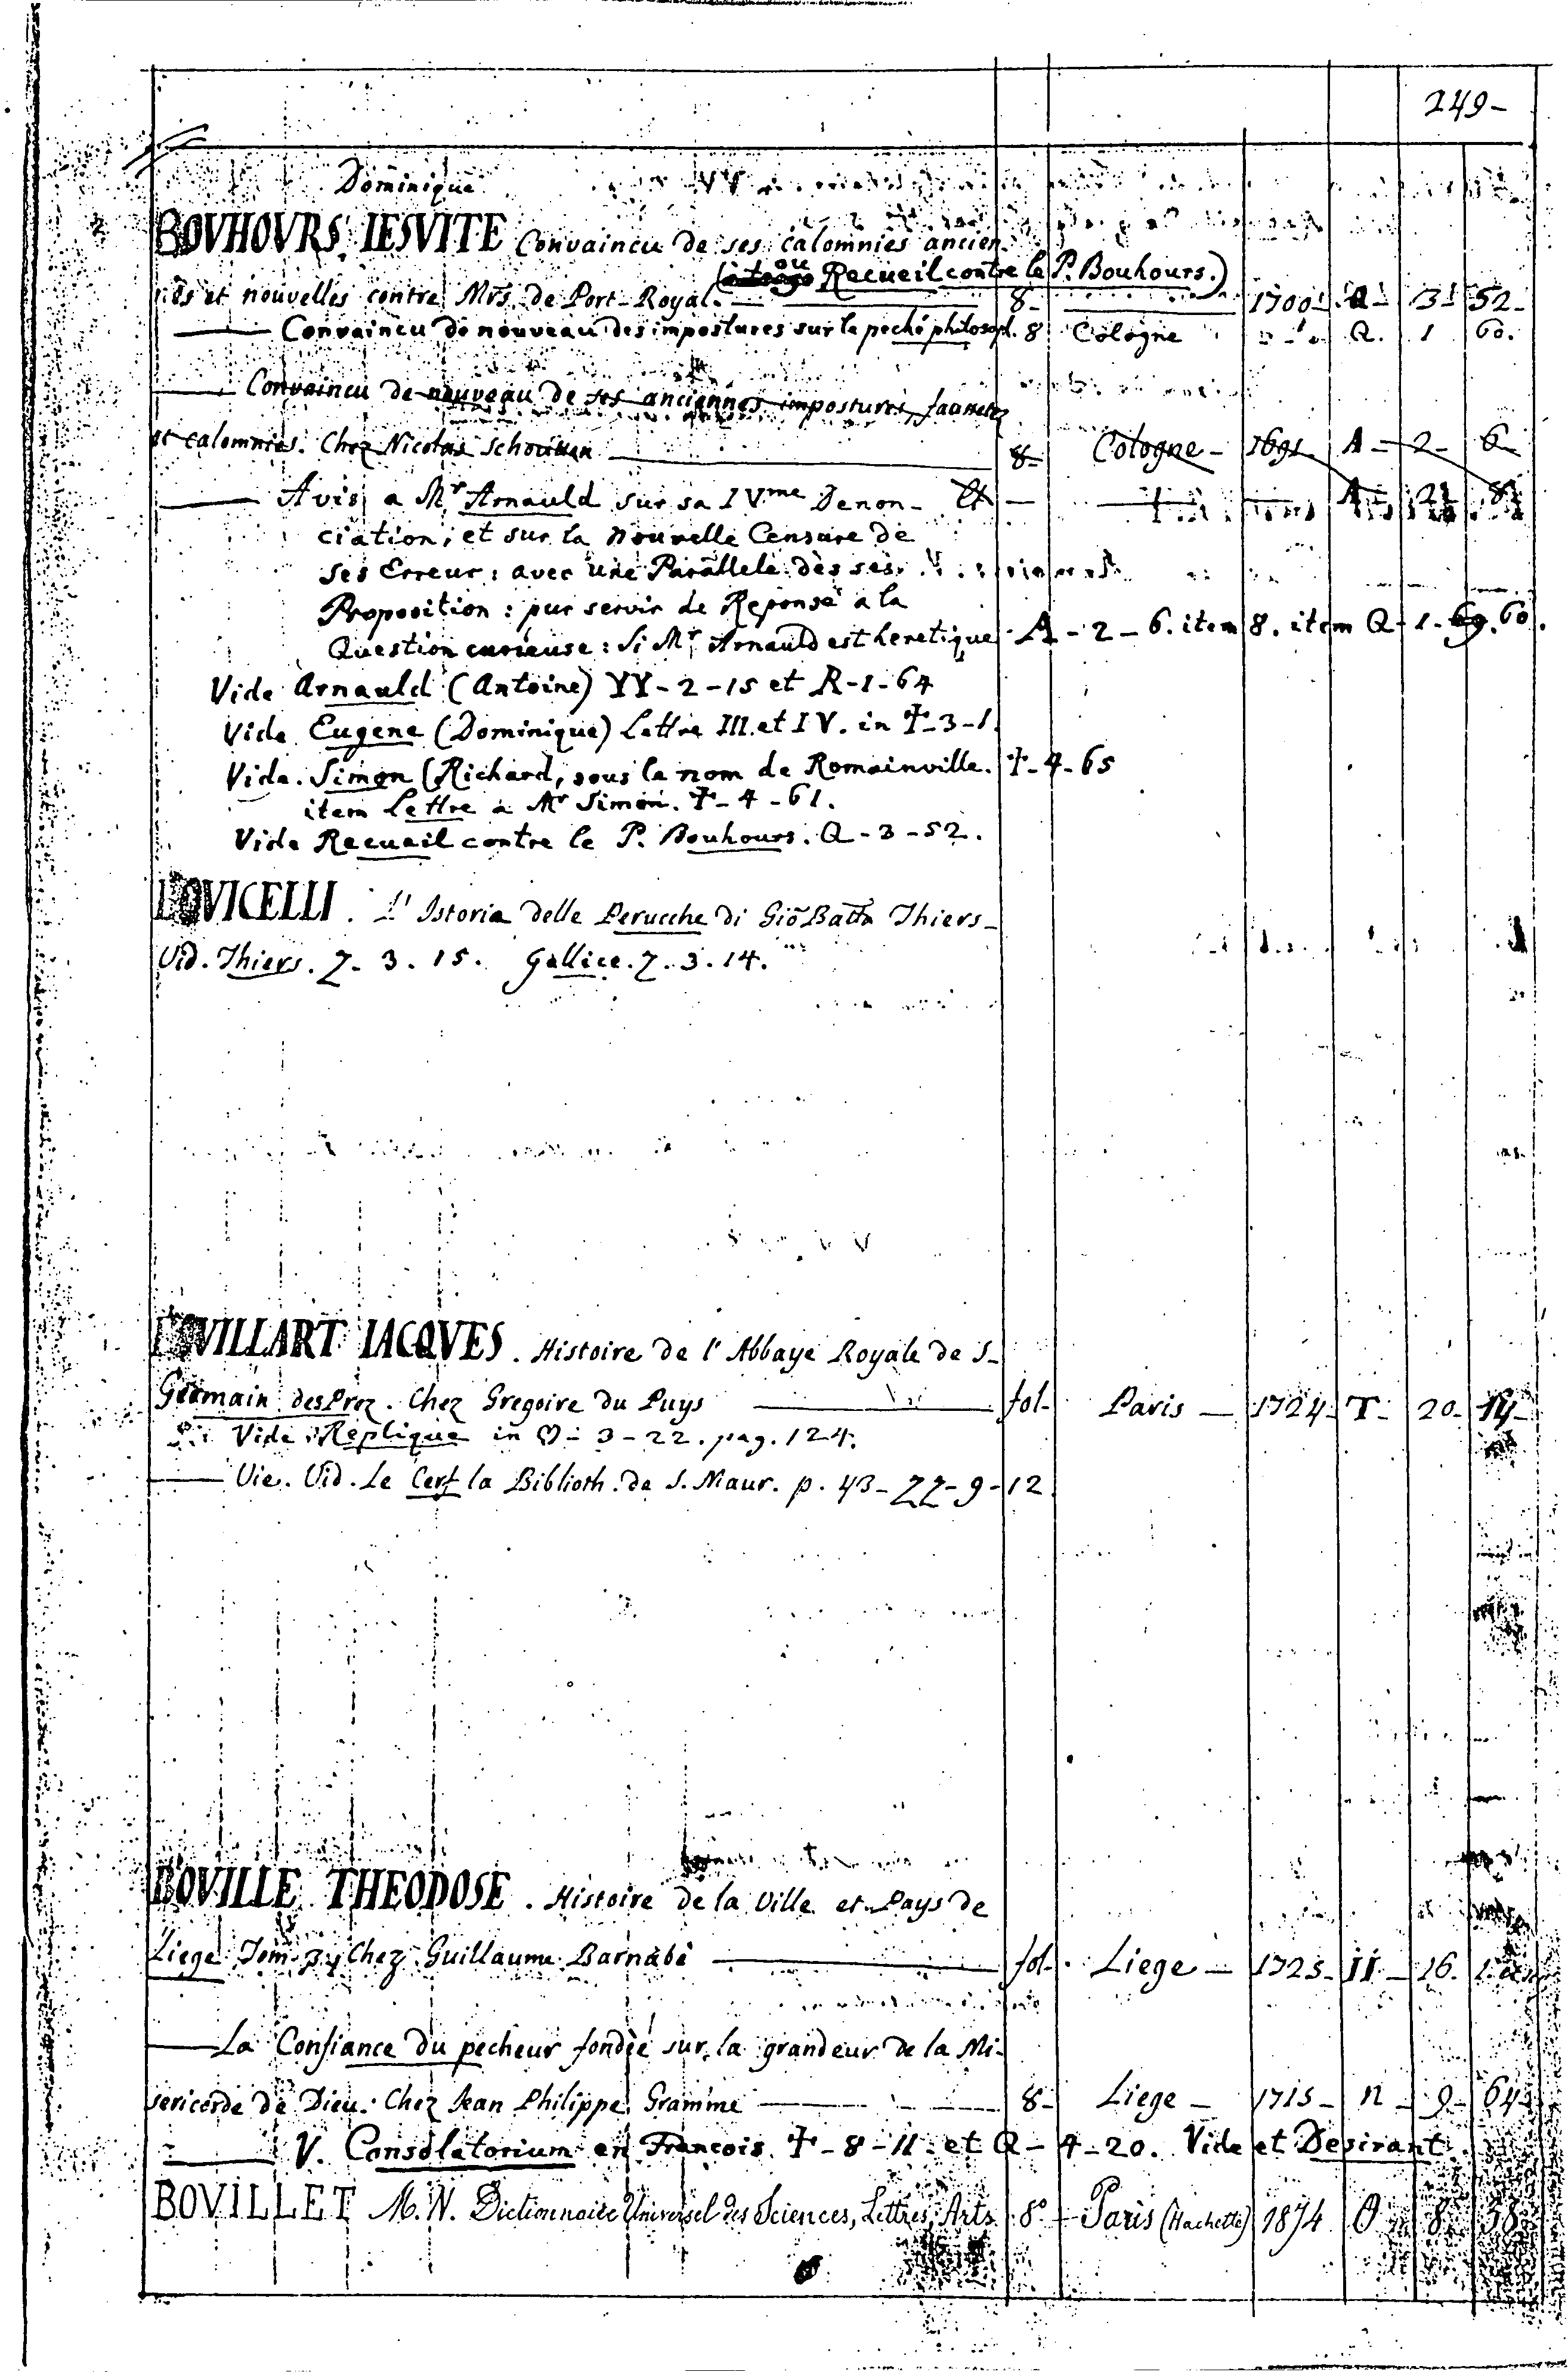 249-
Dominique
BOVHOVRS IESVITE Convaincu de ses calomnies ancien-
(ou Recueil contre le P. Bouhours.)
nes et nouvelles contre Mrs. de Port-Royal. 8- 1700 Q- 3- 52-
Convaincu de nouveau des impostures sur le peché philosoph. 8 Cologne Q. 1 60.
Convaincu de nouveau de ses anciennes impostures, faussetez
et calomnies. Chez Nicolas Schouten 8- Cologne - 1691 A - 2 - 6-
Avis a Mr Arnauld sur sa IVme Denon- A - 2 8
ciation, et sur la nouvelle Censure de
ses Erreur: avec une Parallele des ses
Proposition: pur servir de Reponse a la
Question curieuse: Si Mr Arnauld est heretique A - 2 - 6. item 8. item Q - 1 - 60.
Vide Arnauld (Antoine) YY - 2 - 15 et R - 1 - 64
Vide Eugene (Dominique) Lettre III. et IV. in Ŧ - 3 - 1.
Vide. Simon (Richard, sous le nom de Romainville. Ŧ - 4 - 65
item Lettre a Mr Simon. Ŧ - 4 - 61.
Vide Recueil contre le P. Bouhours. Q - 3 - 52.
BOVICELLI. L' Istoria delle Perucche di Gio Batta Thiers-
Vid. Thiers. Z. 3. 15. Gallice. Z. 3. 14.
BOVILLART IACQVES. Histoire de l'Abbaye Royale de S-
Germain des Prez. Chez Gregoire du Puys fol- Paris - 1724- T- 20- 14-
Vide Replique in ♡ - 3 - 22. pag. 124.
Vie. Vid. Le Cerf la Biblioth. de S. Maur. p. 43 - ZZ - 9 - 12
BOVILLE THEODOSE. Histoire de la Ville et Pays de
Liege Tom. Chez Guillaume Barnabé fol- Liege - 1725- II - 16.
La Confiance du pecheur fondée sur la grandeur de la Mi-
sericorde de Dieu. Chez Jean Philippe Gramme 8- Liege - 1715- n - 9- 64-
V. Consolatorium en Francois. Ŧ - 8 - 11 - et Q - 4 - 20. Vide et Desirant.
BOVILLET M. N. Dictionnaire Universel des Sciences, Lettres, Arts 8° Paris (Hachette) 1874 O 8 38